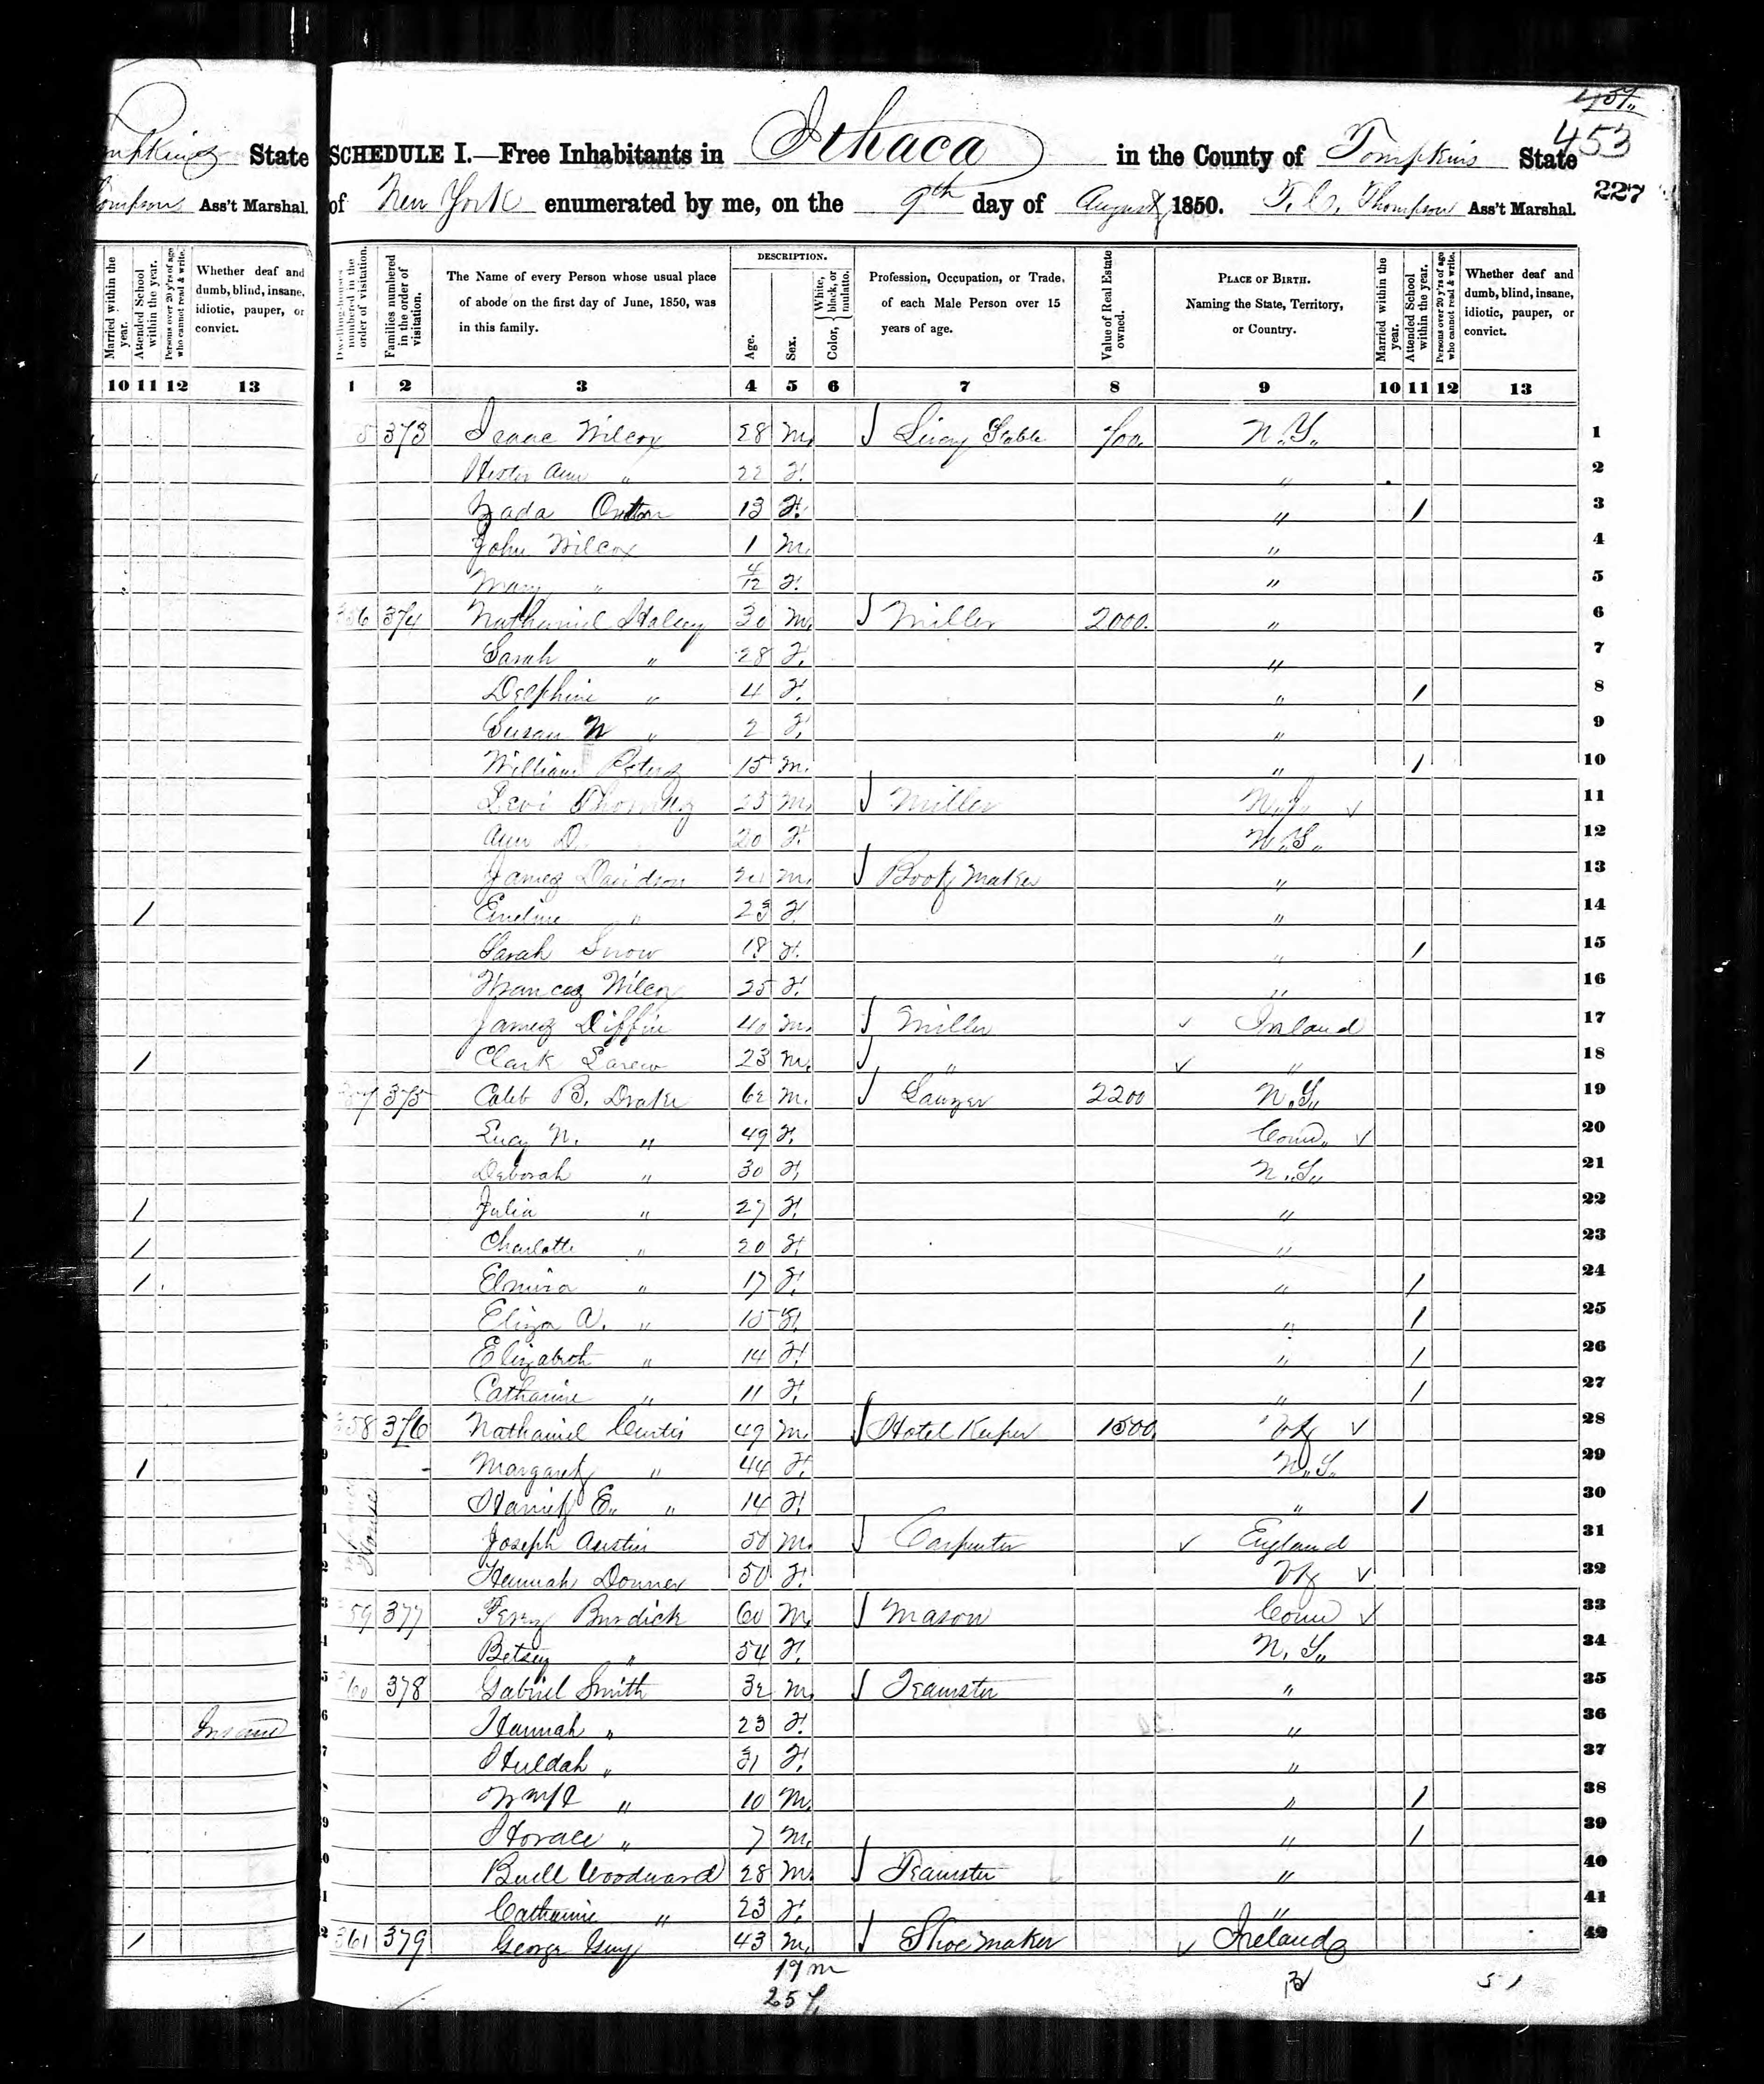 State
Ass't Marshal.
Married within the year.
Attended School within the year.
Persons over 20 y'rs of age who cannot read & write.
Whether deaf and dumb, blind, insane, idiotic, pauper, or convict.
10 11 12 13
1
1
1
1
1
1
Insane
1
453
227
SCHEDULE I.—Free Inhabitants in Ithaca in the County of Tompkins State
of New York enumerated by me, on the 9th day of August 1850. T. C. Thompson Ass't Marshal.
Dwelling-houses numbered in the order of visitation.
Families numbered in the order of visitation.
The Name of every Person whose usual place of abode on the first day of June, 1850, was in this family.
DESCRIPTION.
Age.
Sex.
Color, White, black, or mulatto.
Profession, Occupation, or Trade, of each Male Person over 15 years of age.
Value of Real Estate owned.
PLACE OF BIRTH. Naming the State, Territory, or Country.
Married within the year.
Attended School within the year.
Persons over 20 y'rs of age who cannot read & write.
Whether deaf and dumb, blind, insane, idiotic, pauper, or convict.
1 2 3 4 5 6 7 8 9 10 11 12 13
373 Isaac Wilcox 28 M. N.Y. 1
Hester Ann " 22 F. " 2
13 F. " 1 3
John Wilcox 1 M. " 4
Mary " 4/12 F. " 5
374 Nathaniel Halsey 30 M. Miller 2000. " 6
Sarah " 28 F. " 7
Delphine " 4 F. " 1 8
Susan N " 2 F. " 9
William Peters 15 M. " 1 10
Levi Thomas 25 M. Miller 11
Ann D. 20 F. N.Y. 12
James Davidson M. Boot Maker " 13
Emeline " 23 F. " 14
Sarah Snow 18 F. " 1 15
Frances Wilcox 25 F. " 16
James Diffin 40 M. Miller Ireland 17
Clark Larew 23 M. " " 18
375 Caleb B. Drake 62 M. Lawyer 2200 N.Y. 19
Lucy N. " 49 F. Conn. 20
Deborah " 30 F. N.Y. 21
Julia " 27 F. " 22
Charlotte " 20 F. " 23
Elmira " 17 F. " 1 24
Eliza A. " 15 F. " 1 25
Elizabeth " 14 F. " 1 26
Catharine " 11 F. " 1 27
358 376 Nathaniel Curtis 49 M. Hotel Keeper 1500. Vt 28
Margaret " 44 F. N.Y. 29
Harriet E. " 14 F. " 1 30
Joseph Austin 50 M. Carpenter England 31
Hannah Donner 50 F. Vt 32
59 377 Perry Burdick 60 M. Mason Conn 33
Betsey " 54 F. N.Y. 34
60 378 Gabriel Smith 32 M. Teamster " 35
Hannah " 23 F. " 36
Huldah " 31 F. " 37
" 10 M. " 1 38
Horace " 7 M. " 1 39
Buell Woodward 28 M. Teamster " 40
Catharine " 23 F. " 41
361 379 George Guy 43 M. Shoe Maker Ireland 42
17 m
25 f
51